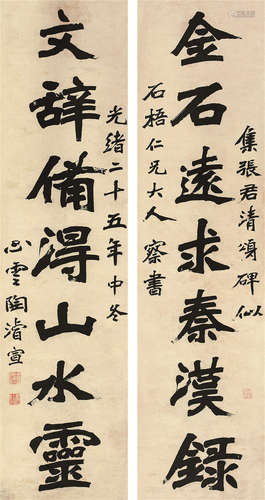 金石遠求秦漢録
集張君清頌碑似
石梧仁兄大人察書
文辞備得山水靈
光緒二十五年中冬
心雲陶濬宣